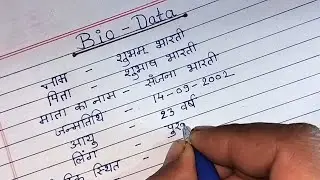 Bio-Data
नाम - शुभम भारती
पिता - शुभाष भारती
माता का नाम - संजना भारती
जन्मतिथि - 14-09-2002
आयु - 23 वर्ष
लिंग - पुरु
स्थित -